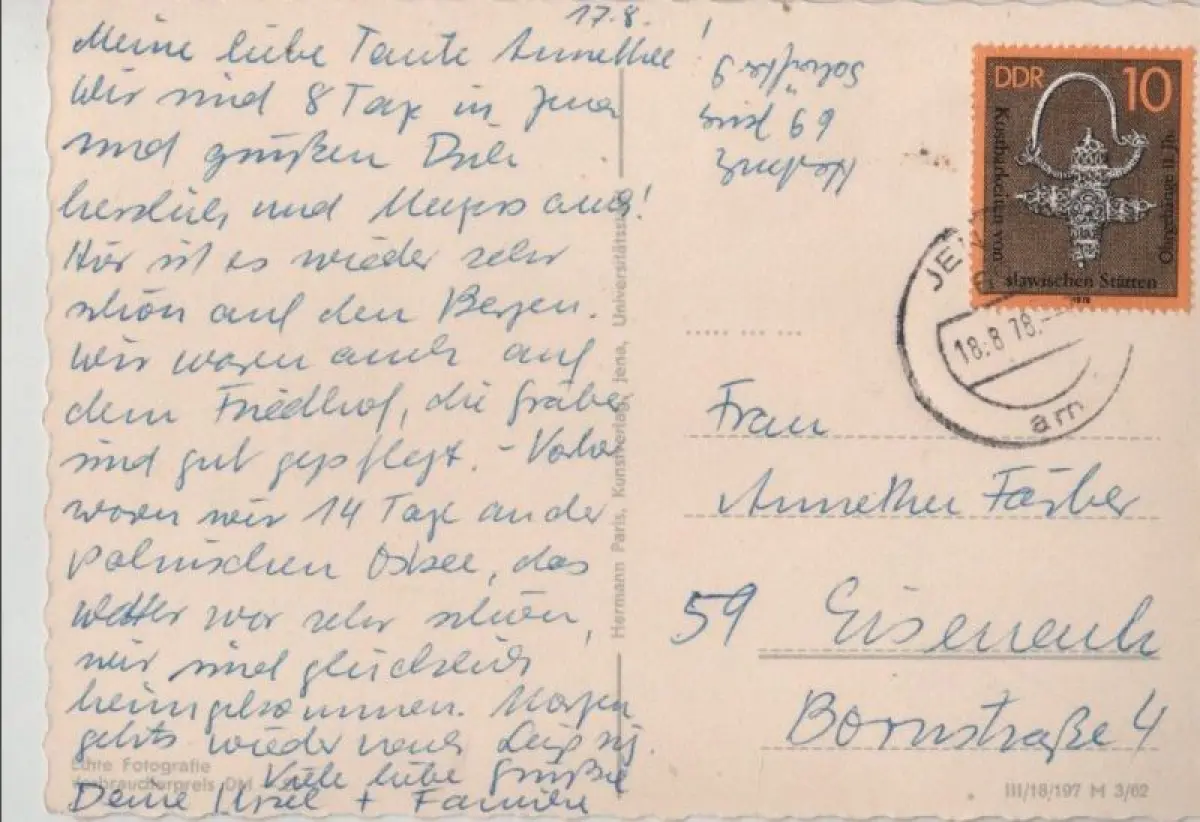 17.8.
Meine liebe Tante Annethee!
Wir sind 8 Tage in Jena
und grüßen Dich
herzlich, und
Hier ist es wieder sehr
schön auf den Bergen.
Wir waren auch auf
dem Friedhof, die Gräber
sind gut gepflegt. - Vorher
waren wir 14 Tage an der
polnischen Ostsee, das
Wetter war sehr schön,
wir sind glücklich
heimgekommen. Morgen
gehts wieder nach Leipzig.
Viele liebe Grüße
Deine Ursel + Familie
69
9
Echte Fotografie
Verbraucherpreis DM
Hermann Paris, Kunstverlag, Jena, Universitätsstr.
DDR 10
Kostbarkeiten von
slawischen Stätten
Ohrgehänge 11. Jh.
1978
JE
18.8.78.
am
Frau
Annethee Färber
59 Eisenach
Bornstraße 4
III/18/197 M 3/62